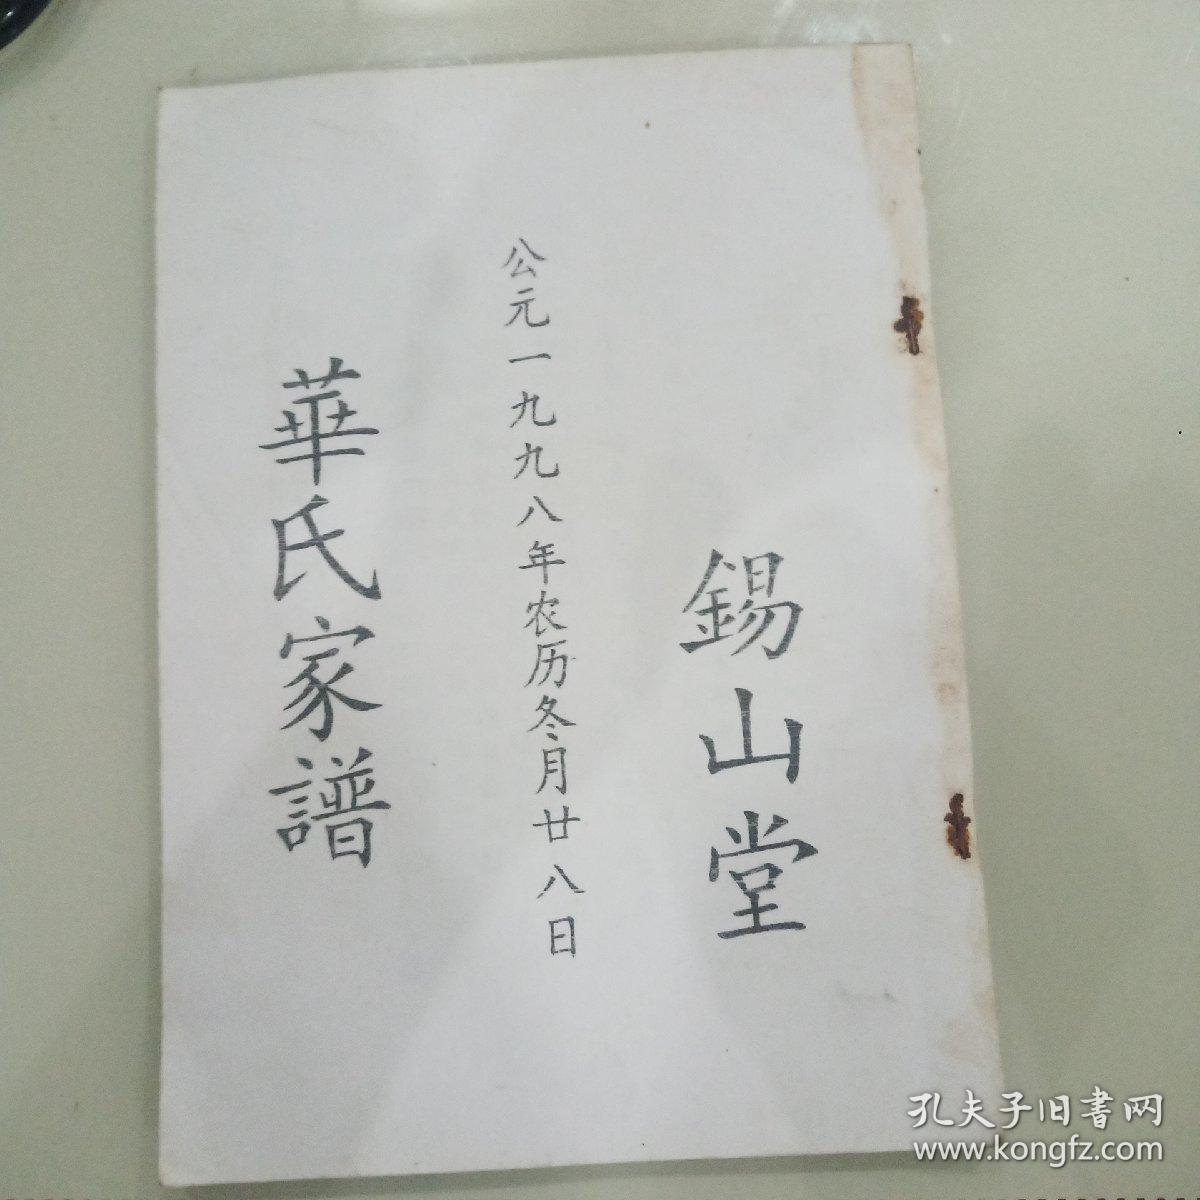 錫山堂
公元一九九八年农历冬月廿八日
華氏家譜
孔夫子旧書网
www.kongfz.com